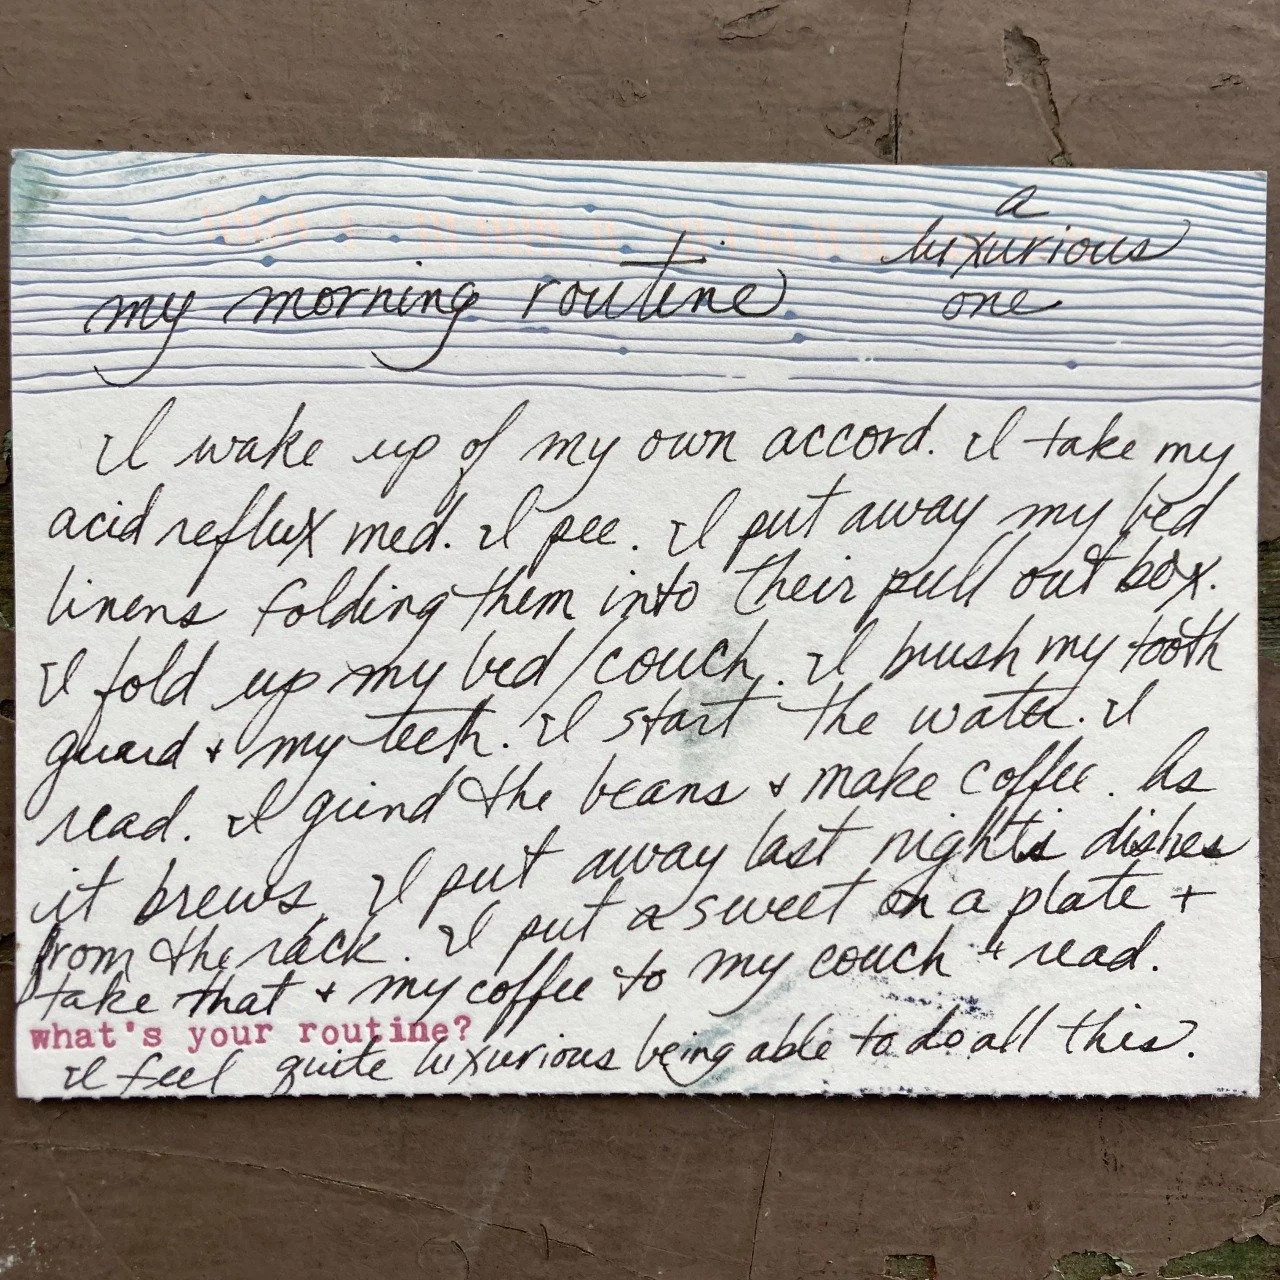 a
luxurious
my morning routine one
I wake up of my own accord. I take my
acid reflux med. I pee. I put away my bed
linens folding them into their pull out box.
I fold up my bed/couch. I brush my tooth
guard + my teeth. I start the water. I
read. I grind the beans + make coffee. As
it brews, I put away last night's dishes
from the rack. I put a sweet on a plate +
take that + my coffee to my couch + read.
what's your routine?
I feel quite luxurious being able to do all this.